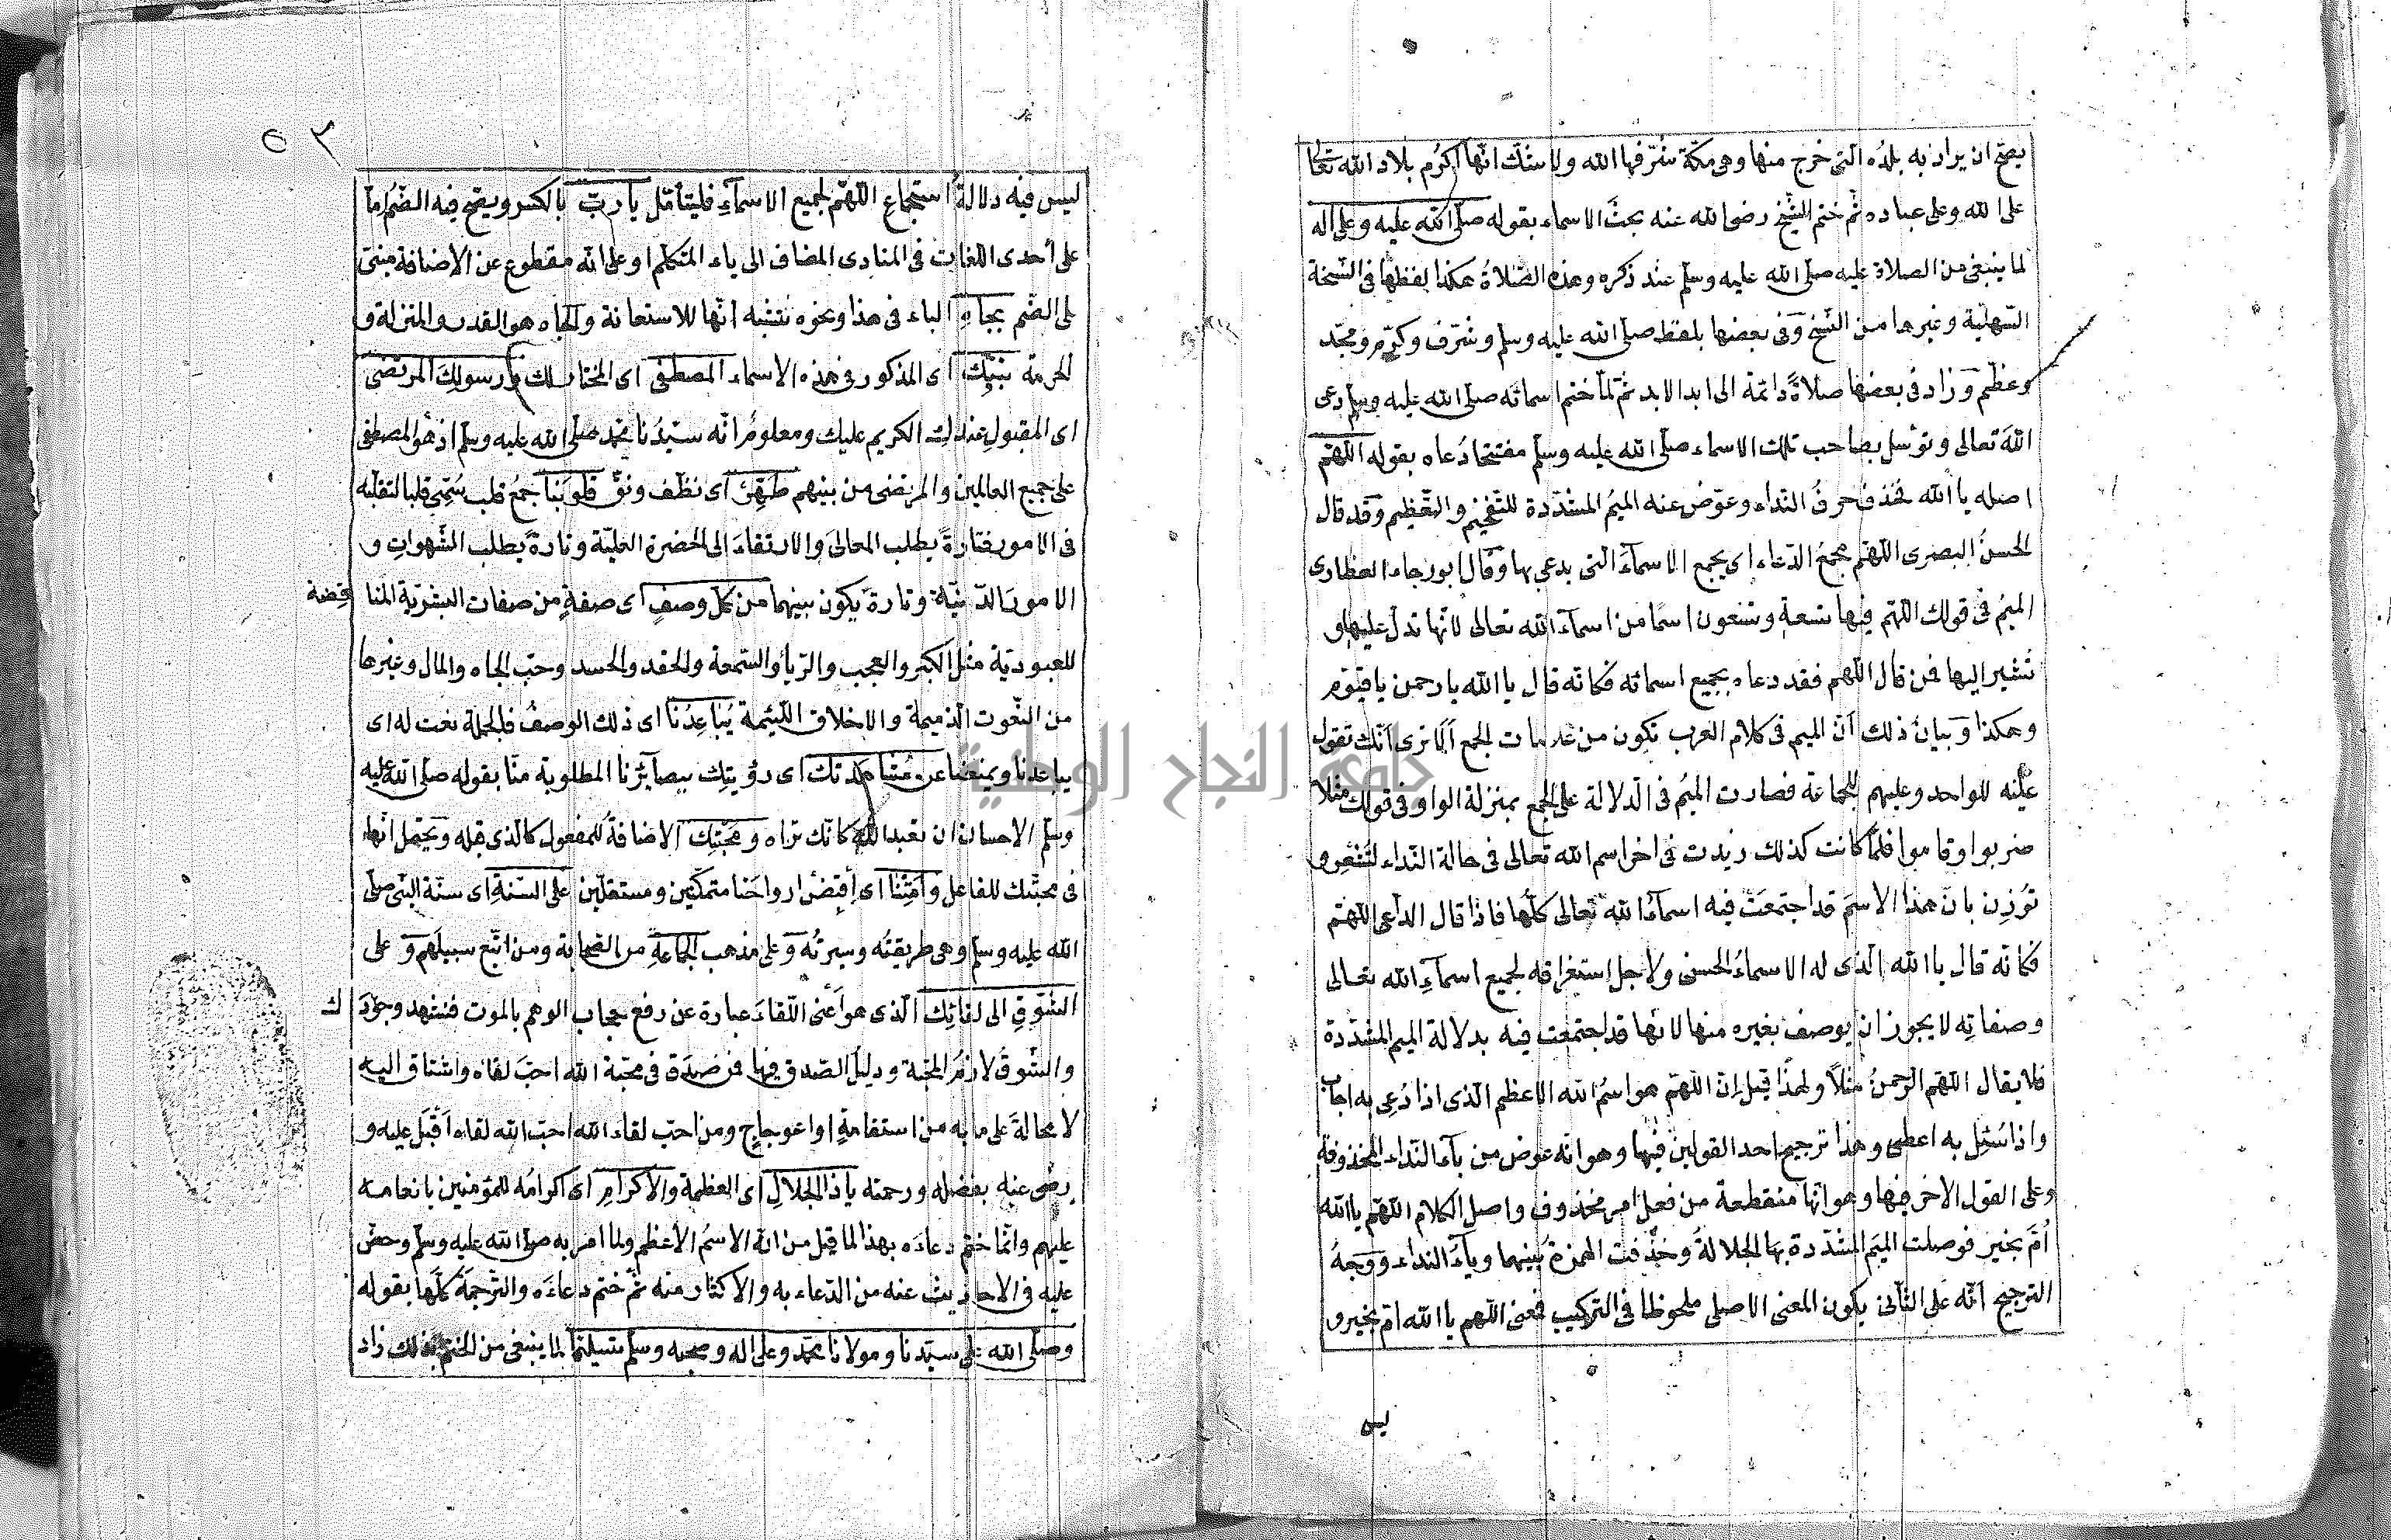 يصح ان يراد به بلده التى خرج منها وهى مكة شرفها الله ولا شك انها اكرم بلاد الله تعالى
على الله وعلى عباده ثم ختم الشيخ رضى الله عنه بحث الاسماء بقوله صلى الله عليه وعلى اله
لما ينبغى من الصلاة عليه صلى الله عليه وسلم عند ذكره وهذه الصلاة هكذا لفظها فى النسخة
السهلية وغيرها من النسخ وفى بعضها بلفظ صلى الله عليه وسلم وشرف وكرم ومجد
وعظم وزاد فى بعضها صلاة دائمة الى ابد الابد ثم لما ختم اسمائه صلى الله عليه وسلم دعى
الله تعالى وتوسل بصاحب تلك الاسماء صلى الله عليه وسلم مفتتحا دعاه بقوله اللهم
اصله يا الله فحذف حرف النداء وعوض عنه الميم المشددة للتفخيم والتعظيم وقد قال
الحسن البصرى اللهم مجمع الدعاء اى يجمع الاسماء التى يدعى بها وقال ابو رجاء العطاردى
الميم فى قولك اللهم فيها تسعة وتسعون اسما من اسماء الله تعالى لانها تدل عليها و
تشير اليها فمن قال اللهم فقد دعاه بجميع اسمائه فكانه قال يا الله يا رحمن يا قيوم
وهكذا وبيان ذلك ان الميم فى كلام العرب تكون من علامات الجمع الا ترى انك تقول
عليه للواحد وعليهم للجماعة فصارت الميم فى الدلالة على الجمع بمنزلة الواو فى قولك مثلا
ضربوا وقاموا فلما كانت كذلك زيدت فى اخر اسم الله تعالى فى حالة النداء لتشعر و
تؤذن بان هذا الاسم قد اجتمعت فيه اسماء الله تعالى كلها فاذا قال الداعى اللهم
فكانه قال يا الله الذى له الاسماء الحسنى ولاجل استغراقه لجميع اسماء الله تعالى
وصفاته لا يجوز ان يوصف بغيره منها لانها قد اجتمعت فيه بدلالة الميم المشددة
فلا يقال اللهم الرحمن مثلا ولهذا قيل ان اللهم هو اسم الله الاعظم الذى اذا دعى به اجاب
واذا سئل به اعطى وهذا ترجيح احد القولين فيها وهو انه عوض من ياء النداء المحذوفة
وعلى القول الاخر فيها وهو انها منقطعة من فعل امر محذوف واصل الكلام اللهم يا الله
أم بخير فوصلت الميم المشددة بها الجلالة وحذفت الهمزة بينهما وياء النداء ووجه
الترجيح انه على الثانى يكون المعنى الاصلى ملحوظا فى التركيب فمعنى اللهم يا الله ام بخير و
ليس
٥٣
ليس فيه دلالة استجماع اللهم لجميع الاسماء فليتأمل يا رب بالكسر ويصح فيه الضم اما
على أحدى اللغات فى المنادى المضاف الى ياء المتكلم او على انه مقطوع عن الاضافة مبنى
على الضم بجاه الباء فى هذا ونحوه تشبه انها للاستعانة والجاه هو القدر والمنزلة و
الحرمة نبيك اى المذكور فى هذه الاسماء المصطفى اى المختار لك ورسولك المرتضى
اى المقبول عندك الكريم عليك ومعلوم انه سيدنا محمد صلى الله عليه وسلم اذ هو المصطفى
على جميع العالمين والمرتضى من بينهم طهر اى نظف ونق قلوبنا جمع قلب سمى قلبا لتقلبه
فى الامور فتارة يطلب المعالى والارتقاء الى الحضرة العلية وتارة يطلب الشهوات و
الامور الدنية وتارة يكون بينهما من كل وصف اى صفة من صفات البشرية المنا قضة
للعبودية مثل الكبر والعجب والريأ والسمعة والحقد والحسد وحب الجاه والمال وغيرها
من النعوت الذميمة والاخلاق اللئيمة يباعدنا اى ذلك الوصف فالجملة نعت له اى
يباعدنا ويمنعنا عن مشاهدتك اى رؤيتك ببصائرنا المطلوبة منا بقوله صلى الله عليه
وسلم الاحسان ان تعبد الله كانك تراه ومحبتك الاضافة للمفعول كالذى قبله ويحتمل انها
فى محبتك للفاعل وأمتنا اى أقبض ارواحنا متمكنين ومستقلين على السنة اى سنة النبى صلى
الله عليه وسلم وهى طريقته وسيرته وعلى مذهب الجماعة من الصحابة ومن اتبع سبيلهم وعلى
الشوق الى لقائك الذى هو أعنى اللقاء عبارة عن رفع حجاب الوهم بالموت فنشهد وجود ك
والشوق لازم المحبة ودليل الصدق فيها فمن صدق فى محبة الله احب لقاه واشتاق اليه
لا محالة على ما به من استقامة او اعوجاج ومن احب لقاء الله احب الله لقاه اقبل عليه و
رضى عنه بفضله ورحمته يا ذا الجلال اى العظمة والاكرام اى اكرامه للمؤمنين بانعامه
عليهم وانما ختم دعاءه بهذا لما قيل من انه الاسم الأعظم ولما امر به صلى الله عليه وسلم وحض
عليه فى الاحاديث عنه من الدعاء به والاكثار منه ثم ختم دعاءه والترجمة كلها بقوله
وصلى الله على سيدنا ومولانا محمد وعلى اله وصحبه وسلم تسليما لما ينبغى من الختم بذلك زاد
جامعة النجاح الوطنية